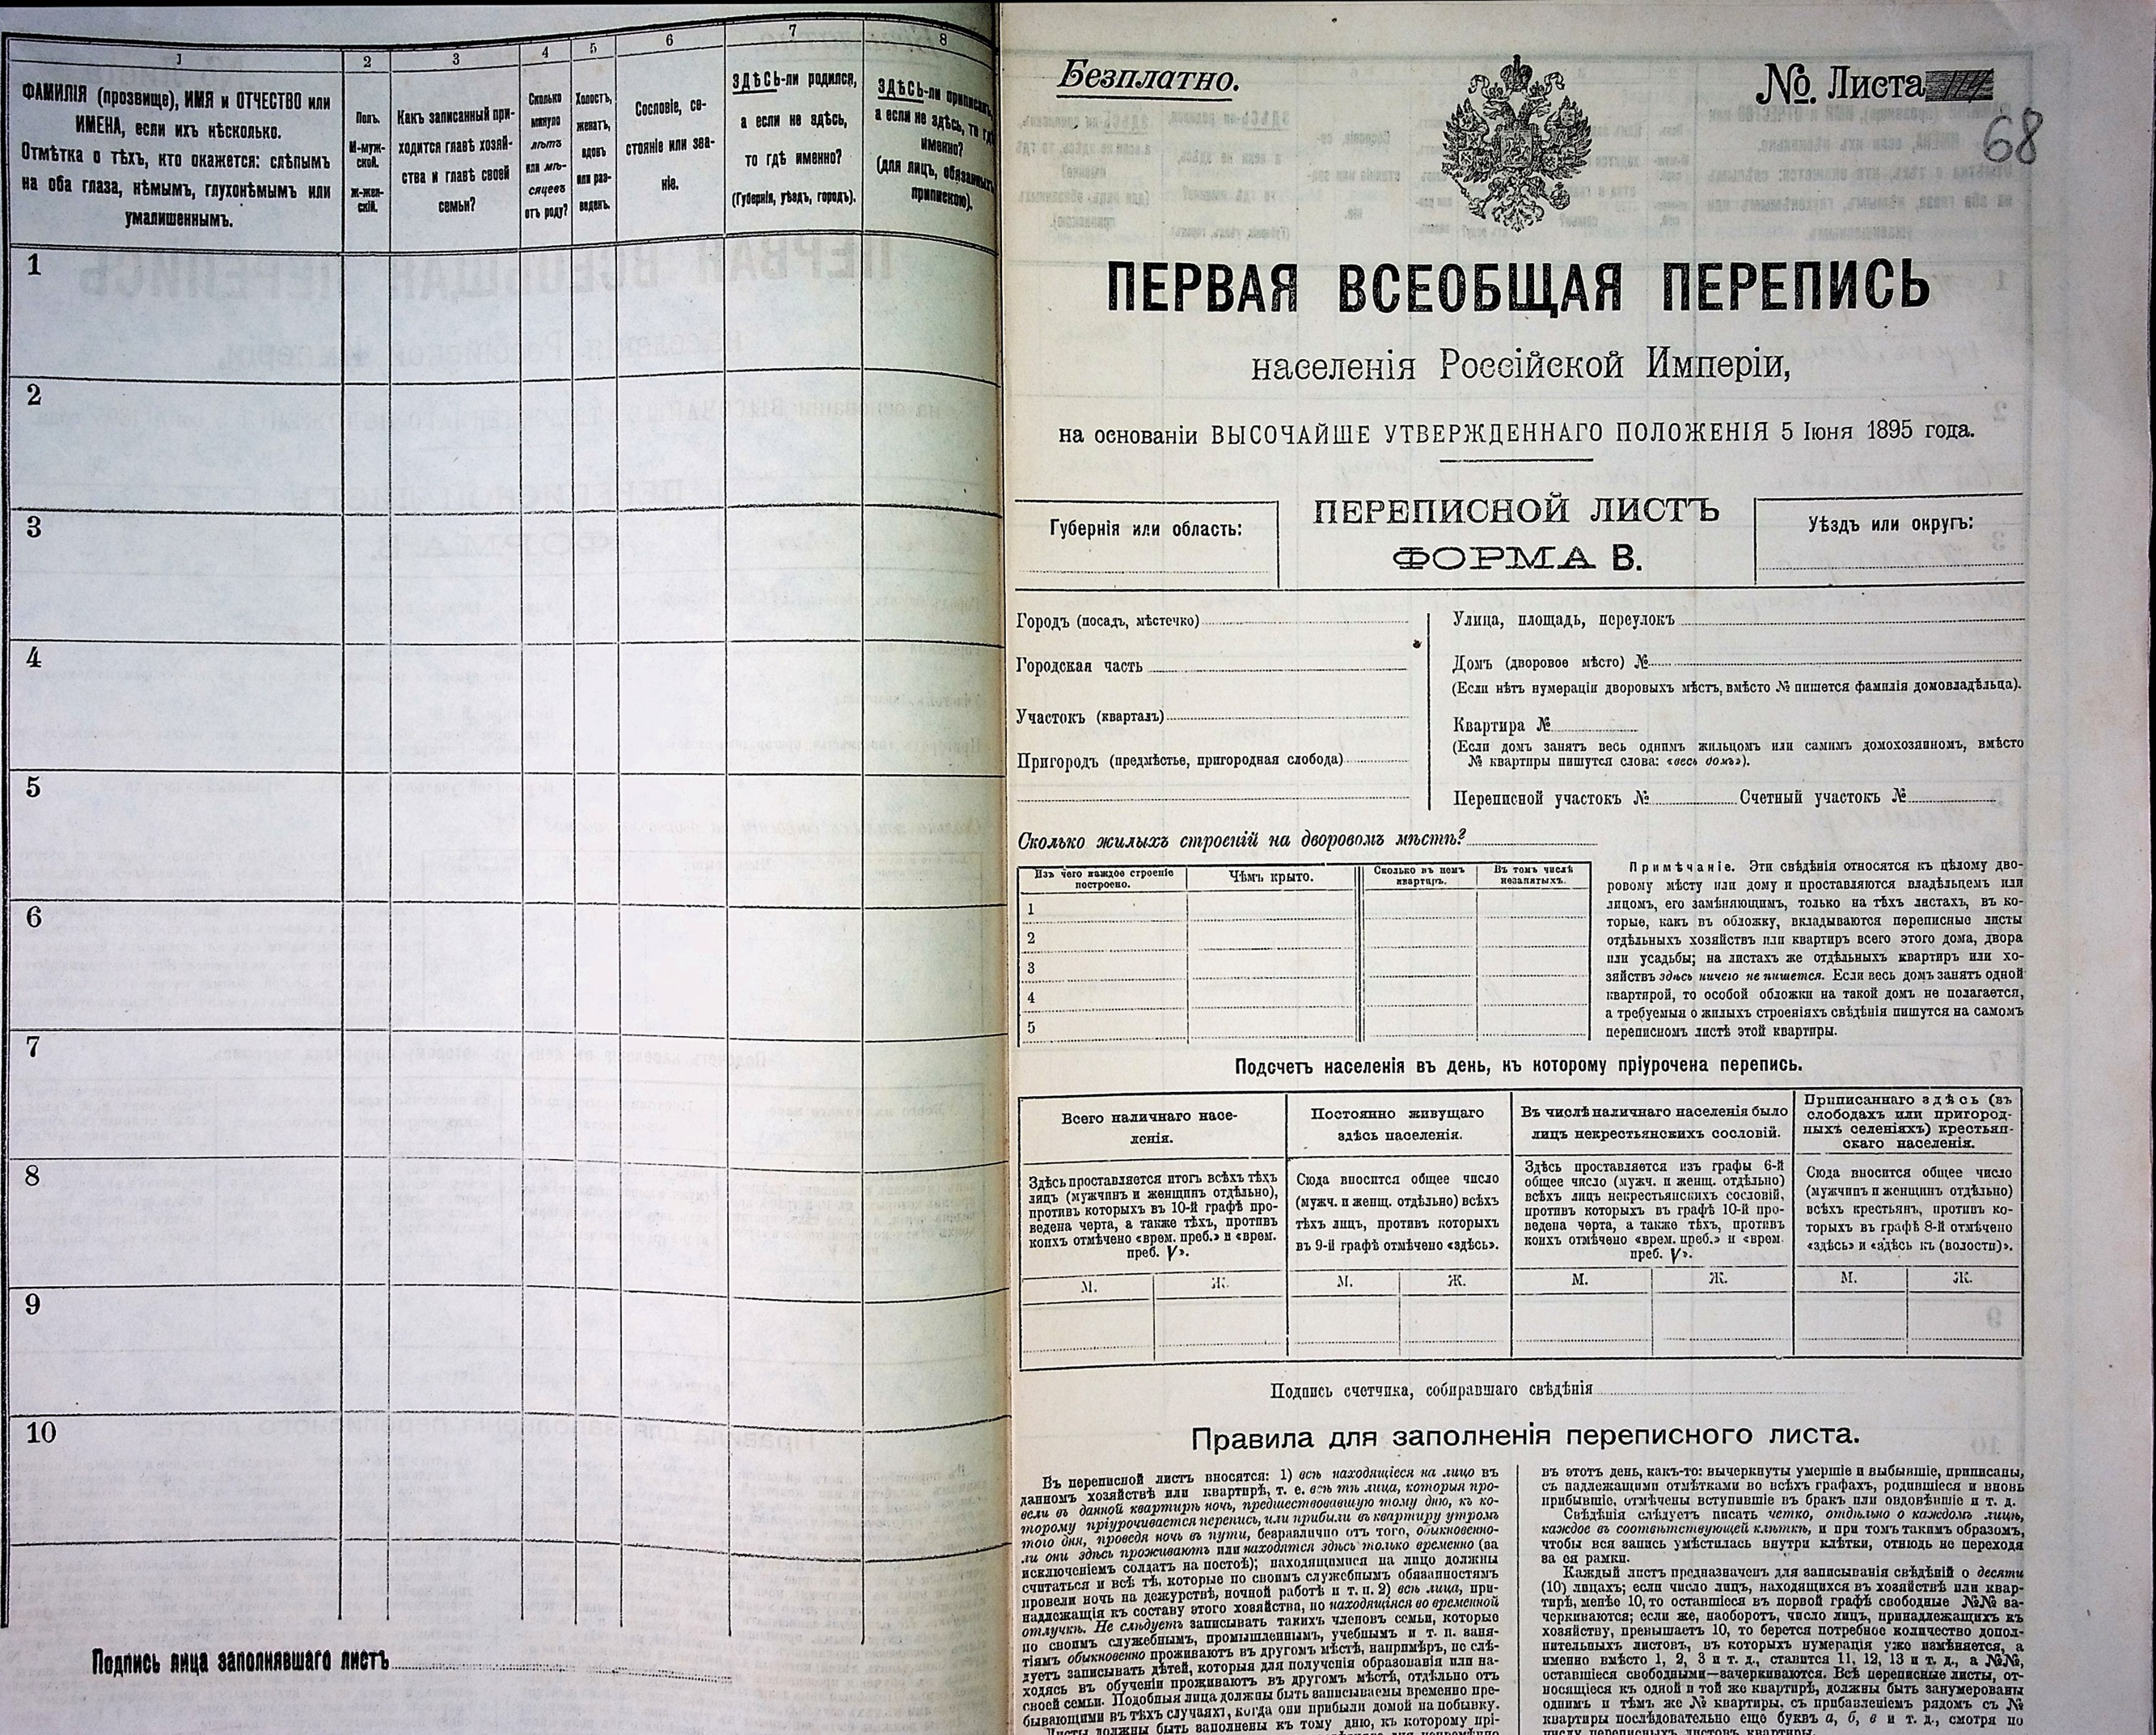 1
2
3
4
5
6
7
8
ФАМИЛІЯ (прозвище), ИМЯ и ОТЧЕСТВО или
ИМЕНА, если ихъ нѣсколько.
Отмѣтка о тѣхъ, кто окажется: слѣпымъ
на оба глаза, нѣмымъ, глухонѣмымъ или
умалишеннымъ.
Полъ.
М-муж-
ской.
ж-жен-
скій.
Какъ записанный при-
ходится главѣ хозяй-
ства и главѣ своей
семьи?
Сколько
минуло
лѣтъ
или мѣ-
сяцевъ
отъ роду?
Холостъ,
женатъ,
вдовъ
или раз-
веденъ.
Сословіе, со-
стояніе или зва-
ніе.
ЗДѢСЬ-ли родился,
а если не здѣсь,
то гдѣ именно?
(Губернія, уѣздъ, городъ).
ЗДѢСЬ-ли приписанъ,
а если не здѣсь, то гдѣ
именно?
(для лицъ, обязанныхъ
припискою).
1
2
3
4
5
6
7
8
9
10
Подпись лица заполнявшаго листъ
Безплатно.
№. Листа
68
ПЕРВАЯ ВСЕОБЩАЯ ПЕРЕПИСЬ
населенія Россійской Имперіи,
на основаніи ВЫСОЧАЙШЕ УТВЕРЖДЕННАГО ПОЛОЖЕНІЯ 5 Іюня 1895 года.
Губернія или область:
ПЕРЕПИСНОЙ ЛИСТЪ
ФОРМА В.
Уѣздъ или округъ:
Городъ (посадъ, мѣстечко)
Городская часть
Участокъ (кварталъ)
Пригородъ (предмѣстье, пригородная слобода)
Улица, площадь, переулокъ
Домъ (дворовое мѣсто) №
(Если нѣтъ нумераціи дворовыхъ мѣстъ, вмѣсто № пишется фамилія домовладѣльца).
Квартира №
(Если домъ занятъ весь однимъ жильцомъ или самимъ домохозяиномъ, вмѣсто
№ квартиры пишутся слова: «весь домъ»).
Переписной участокъ № Счетный участокъ №
Сколько жилыхъ строеній на дворовомъ мѣстѣ?
Изъ чего каждое строеніе
построено.
Чѣмъ крыто.
Сколько въ немъ
квартиръ.
Въ томъ числѣ
незанятыхъ.
1
2
3
4
5
Примѣчаніе. Эти свѣдѣнія относятся къ цѣлому дво-
ровому мѣсту или дому и проставляются владѣльцемъ или
лицомъ, его замѣняющимъ, только на тѣхъ листахъ, въ ко-
торые, какъ въ обложку, вкладываются переписные листы
отдѣльныхъ хозяйствъ или квартиръ всего этого дома, двора
или усадьбы; на листахъ же отдѣльныхъ квартиръ или хо-
зяйствъ здѣсь ничего не пишется. Если весь домъ занятъ одной
квартирой, то особой обложки на такой домъ не полагается,
а требуемыя о жилыхъ строеніяхъ свѣдѣнія пишутся на самомъ
переписномъ листѣ этой квартиры.
Подсчетъ населенія въ день, къ которому пріурочена перепись.
Всего наличнаго насе-
ленія.
Постоянно живущаго
здѣсь населенія.
Въ числѣ наличнаго населенія было
лицъ некрестьянскихъ сословій.
Приписаннаго здѣсь (въ
слободахъ или пригород-
ныхъ селеніяхъ) крестьян-
скаго населенія.
Здѣсь проставляется итогъ всѣхъ тѣхъ
лицъ (мужчинъ и женщинъ отдѣльно),
противъ которыхъ въ 10-й графѣ про-
ведена черта, а также тѣхъ, противъ
коихъ отмѣчено «врем. преб.» и «врем.
преб. V».
Сюда вносится общее число
(мужч. и женщ. отдѣльно) всѣхъ
тѣхъ лицъ, противъ которыхъ
въ 9-й графѣ отмѣчено «здѣсь».
Здѣсь проставляется изъ графы 6-й
общее число (мужч. и женщ. отдѣльно)
всѣхъ лицъ некрестьянскихъ сословій,
противъ которыхъ въ графѣ 10-й про-
ведена черта, а также тѣхъ, противъ
коихъ отмѣчено «врем. преб.» и «врем.
преб. V».
Сюда вносится общее число
(мужчинъ и женщинъ отдѣльно)
всѣхъ крестьянъ, противъ ко-
торыхъ въ графѣ 8-й отмѣчено
«здѣсь» и «здѣсь къ (волости)».
М. Ж. М. Ж. М. Ж. М. Ж.
Подпись счетчика, собиравшаго свѣдѣнія
Правила для заполненія переписного листа.
Въ переписной листъ вносятся: 1) всѣ находящіеся на лицо въ
данномъ хозяйствѣ или квартирѣ, т. е. всѣ тѣ лица, которыя про-
вели въ данной квартирѣ ночь, предшествовавшую тому дню, къ ко-
торому пріурочивается перепись, или прибыли въ квартиру утромъ
того дня, проведя ночь въ пути, безразлично отъ того, обыкновенно-
ли они здѣсь проживаютъ или находятся здѣсь только временно (за
исключеніемъ солдатъ на постоѣ); находящимися на лицо должны
считаться и всѣ тѣ, которые по своимъ служебнымъ обязанностямъ
провели ночь на дежурствѣ, ночной работѣ и т. п. 2) всѣ лица, при-
надлежащія къ составу этого хозяйства, но находящіяся во временной
отлучкѣ. Не слѣдуетъ записывать такихъ членовъ семьи, которые
по своимъ служебнымъ, промышленнымъ, учебнымъ и т. п. заня-
тіямъ обыкновенно проживаютъ въ другомъ мѣстѣ, напримѣръ, не слѣ-
дуетъ записывать дѣтей, которыя для полученія образованія или на-
ходясь въ обученіи проживаютъ въ другомъ мѣстѣ, отдѣльно отъ
своей семьи. Подобныя лица должны быть записываемы временно пре-
бывающими въ тѣхъ случаяхъ, когда они прибыли домой на побывку.
Листы должны быть заполнены къ тому дню, къ которому прі-
въ этотъ день, какъ-то: вычеркнуты умершіе и выбывшіе, приписаны,
съ надлежащими отмѣтками во всѣхъ графахъ, родившіеся и вновь
прибывшіе, отмѣчены вступившіе въ бракъ или овдовѣвшіе и т. д.
Свѣдѣнія слѣдуетъ писать четко, отдѣльно о каждомъ лицѣ,
каждое въ соотвѣтствующей клѣткѣ, и при томъ такимъ образомъ,
чтобы вся запись умѣстилась внутри клѣтки, отнюдь не переходя
за ея рамки.
Каждый листъ предназначенъ для записыванія свѣдѣній о десяти
(10) лицахъ; если число лицъ, находящихся въ хозяйствѣ или квар-
тирѣ, менѣе 10, то оставшіеся въ первой графѣ свободные №№ за-
черкиваются; если же, наоборотъ, число лицъ, принадлежащихъ къ
хозяйству, превышаетъ 10, то берется потребное количество допол-
нительныхъ листовъ, въ которыхъ нумерація уже измѣняется, а
именно вмѣсто 1, 2, 3 и т. д., ставится 11, 12, 13 и т. д., а №№,
оставшіеся свободными—зачеркиваются. Всѣ переписные листы, от-
носящіеся къ одной и той же квартирѣ, должны быть занумерованы
однимъ и тѣмъ же № квартиры, съ прибавленіемъ рядомъ съ №
квартиры послѣдовательно еще буквъ а, б, в и т. д., смотря по
числу переписныхъ листовъ квартиры.